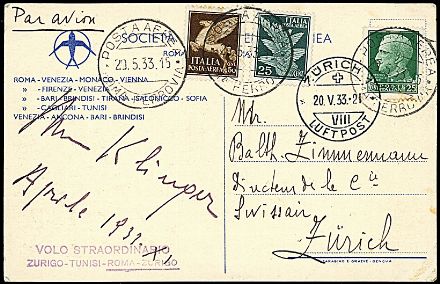 Par avion
SOCIETÀ
ROMA
POSTA AEREA
20.5.33.15
ROMA FERROVIA
ITALIA
POSTA AEREA 50
ITALIA
25
ZÜRICH
20.V.33.-21
VIII
LUFTPOST
ITALIANE
25
ROMA-VENEZIA-MONACO-VIENNA
" -FIRENZE-VENEZIA
" -BARI-BRINDISI-TIRANA-SALONICCO-SOFIA
" -CAGLIARI-TUNISI
VENEZIA-ANCONA-BARI-BRINDISI
Klinger
Aprile 1933. XI
VOLO STRAORDINARIO
ZURIGO-TUNISI-ROMA-ZURIGO
Mr.
Balth. Zimmermann
Directeur de la Cie
Swissair
Zürich